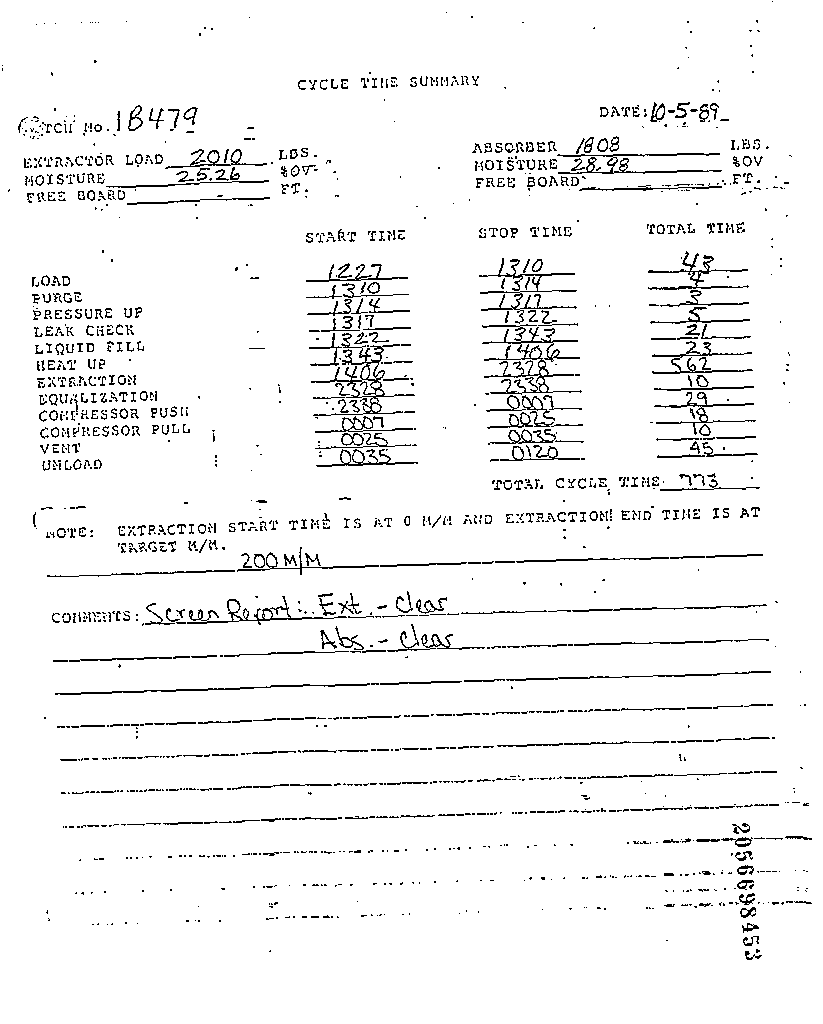 CYCLE TIME SUMMARY
DATE: 10-5-89
No. 18479
EXTRACTOR LOAD 2010 LBS. ABSORBER 1808 LBS.
MOISTURE 25.26 %OV MOISTURE 28.98 %OV
FREE BOARD - FT. FREE BOARD FT.
START TIME STOP TIME TOTAL TIME
LOAD 1227 1310 43
PURGE 1310 1314 4
PRESSURE UP 1314 1317 3
LEAK CHECK 1317 1322 5
LIQUID FILL 1322 1343 21
HEAT UP 1343 1406 23
EXTRACTION 1406 2328 562
EQUALIZATION 2328 2338 10
COMPRESSOR PUSH 2338 0007 29
COMPRESSOR PULL 0007 0025 18
VENT 0025 0035 10
UNLOAD 0035 0120 45
TOTAL CYCLE TIME 773
NOTE: EXTRACTION START TIME IS AT 0 M/M AND EXTRACTION END TIME IS AT
TARGET M/M.
200 M/M
COMMENTS: Screen Report: Ext. - Clear
Abs. - Clear
2056698453